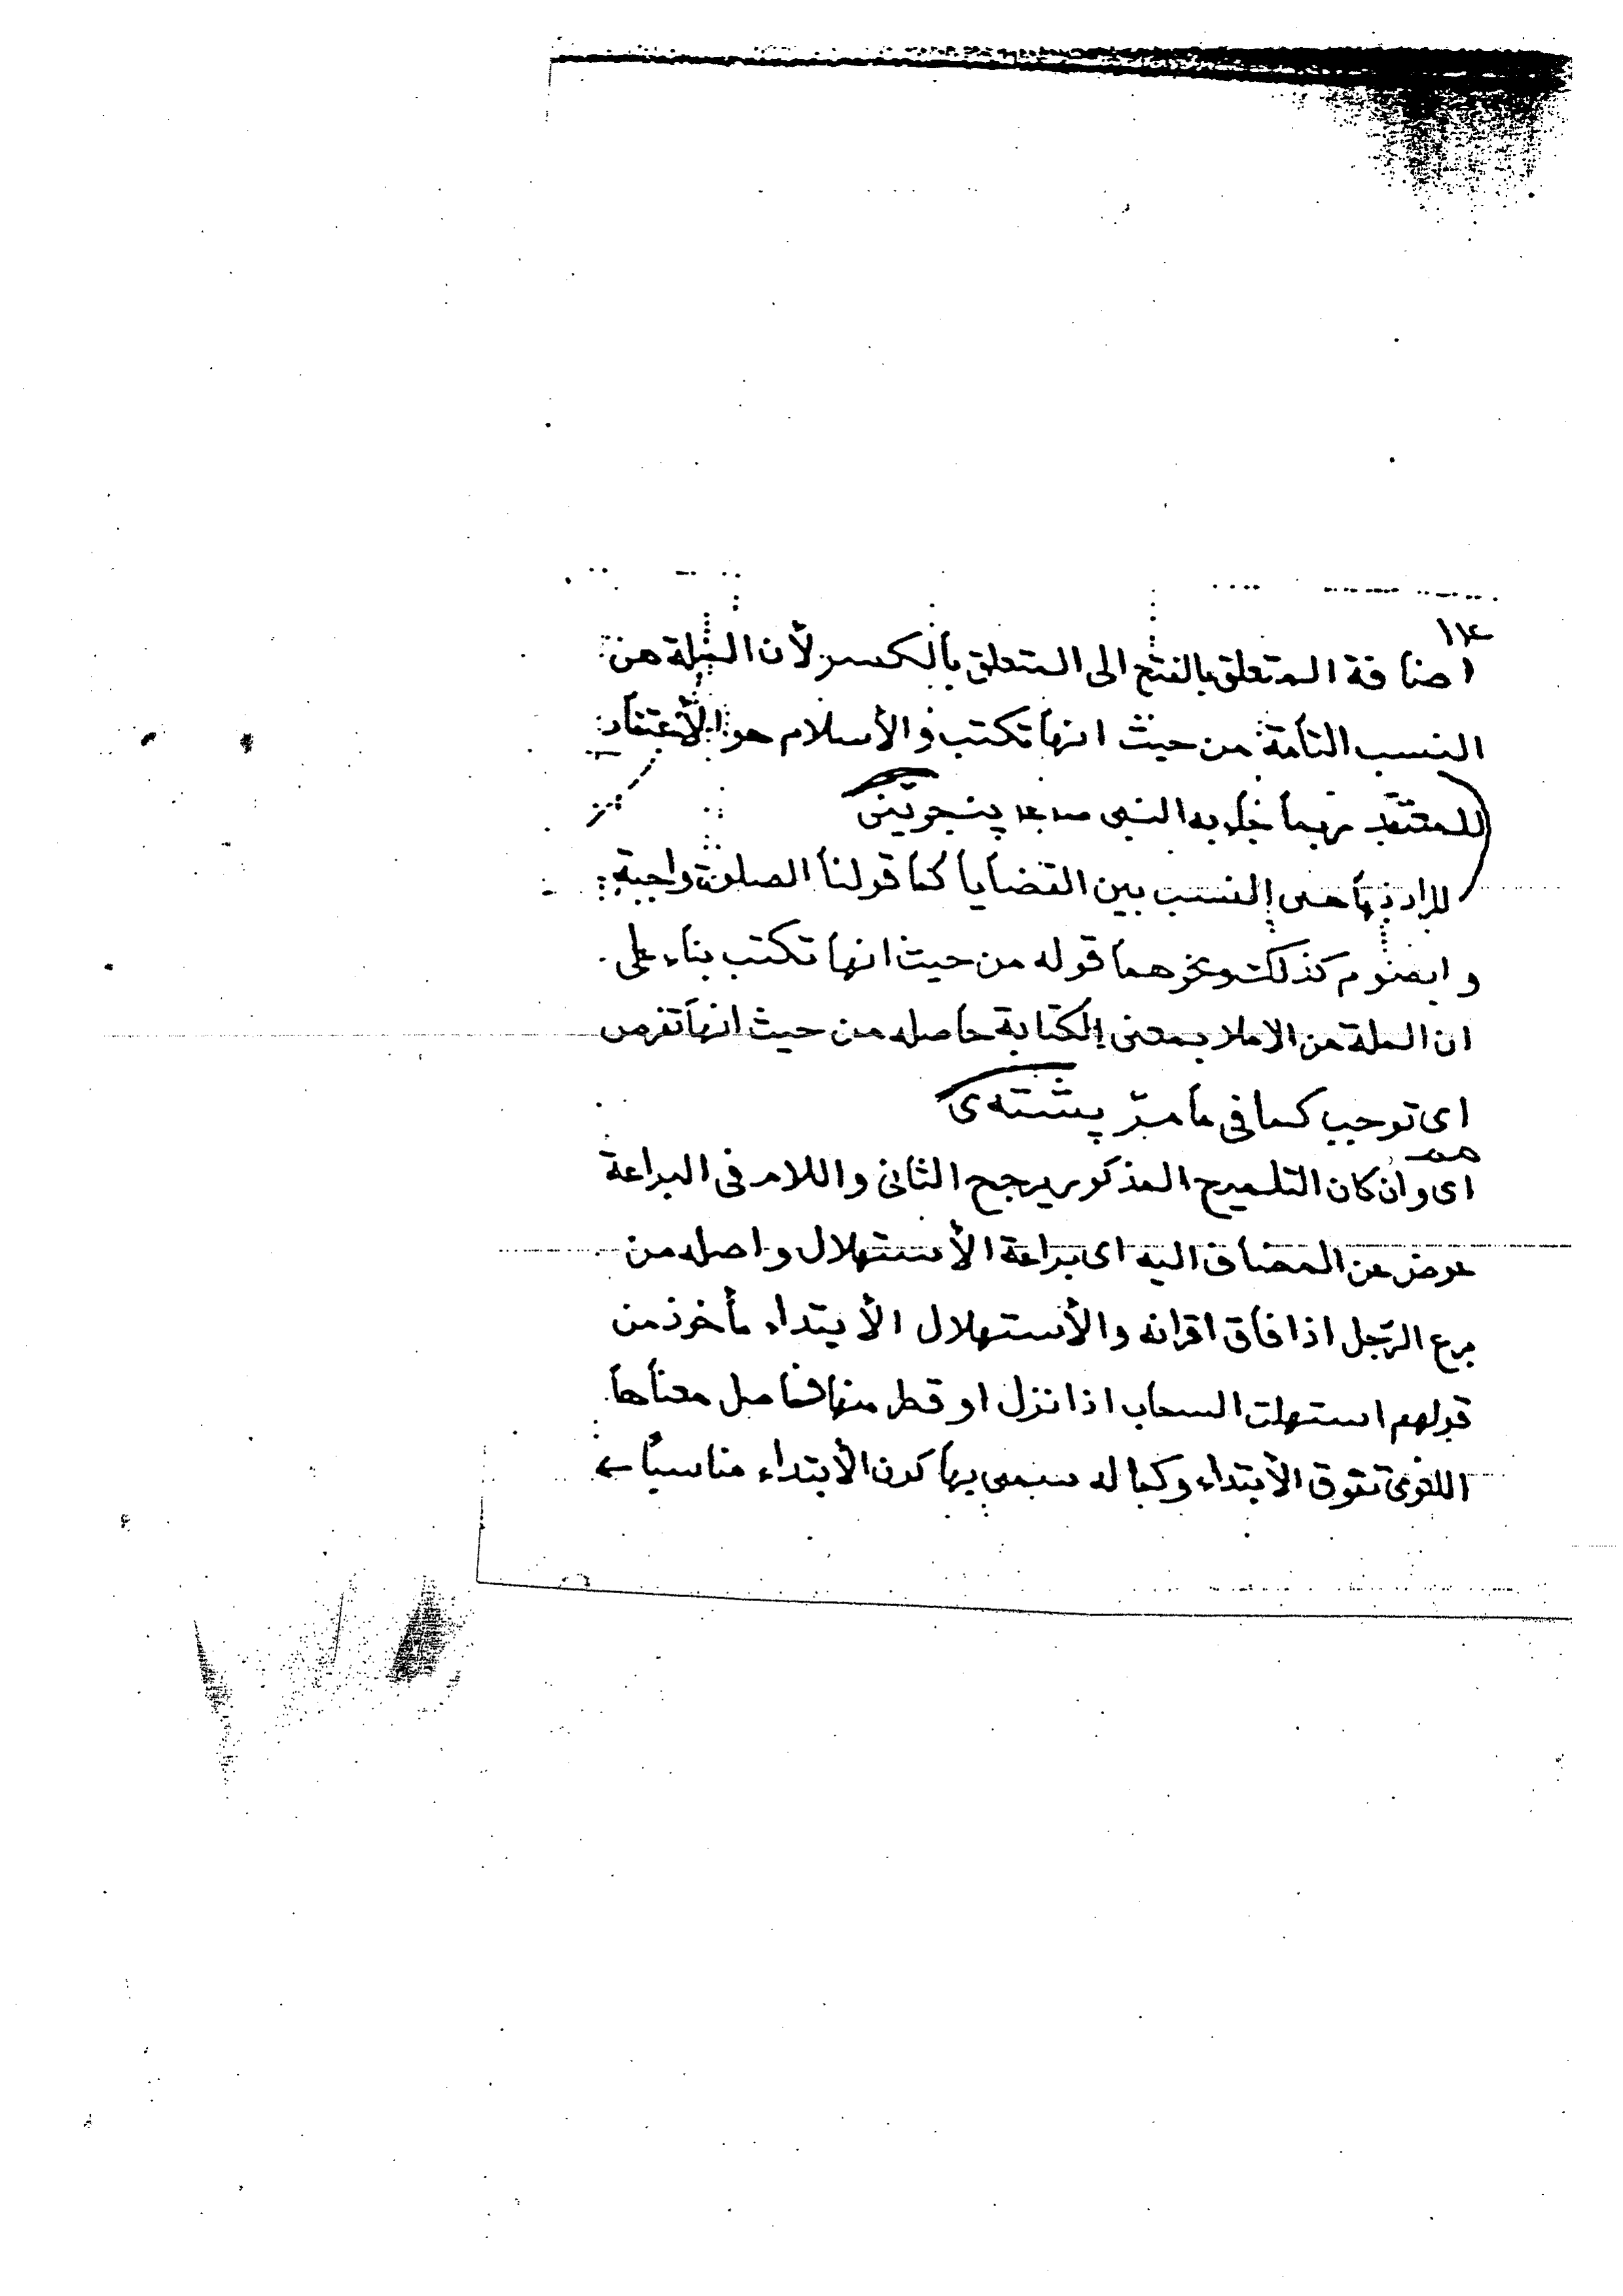 ١٢
اضافة المتعلق بالفتح الى المتعلق بالكسر لأن الملة من
النسب التامة من حيث انها تكتب والأسلام هو الأعتقاد
للمعتقد بهما جاء به النبى پنجوينى
المراد بها هى النسب بين القضايا كما قولنا الصلوة واجبة
و ايضو م كذلك ونحوهما قوله من حيث انها تكتب بناء على
ان الملة من الاملا بمعنى الكتابة حاصله من حيث انها تفرض
اى توجب كما فى ما مرّ پشتەى
اى وان كان التلميح المذكور يرجح الثانى واللام فى البراعة
عوض عن المضاف اليه اى براعة الأستهلال واصله من
برع الرّجل اذا فاق اقرانه والأستهلال الأبتداء مأخوذ من
قولهم استهلت السحاب اذا نزل او قطر منها فحاصل معناها
اللغوى تفوق الأبتداء وكماله سمى بها كون الأبتداء مناسبًا ←